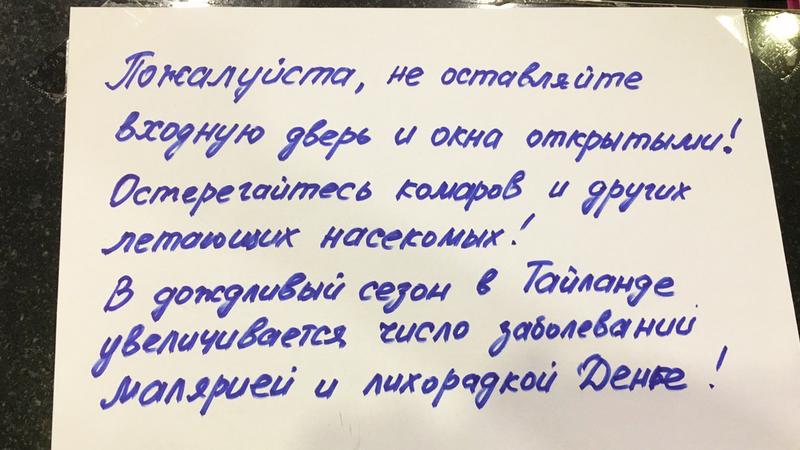 Пожалуйста, не оставляйте
входную дверь и окна открытыми!
Остерегайтесь комаров и других
летающих насекомых!
В дождливый сезон в Тайланде
увеличивается число заболеваний
малярией и лихорадкой Денге!